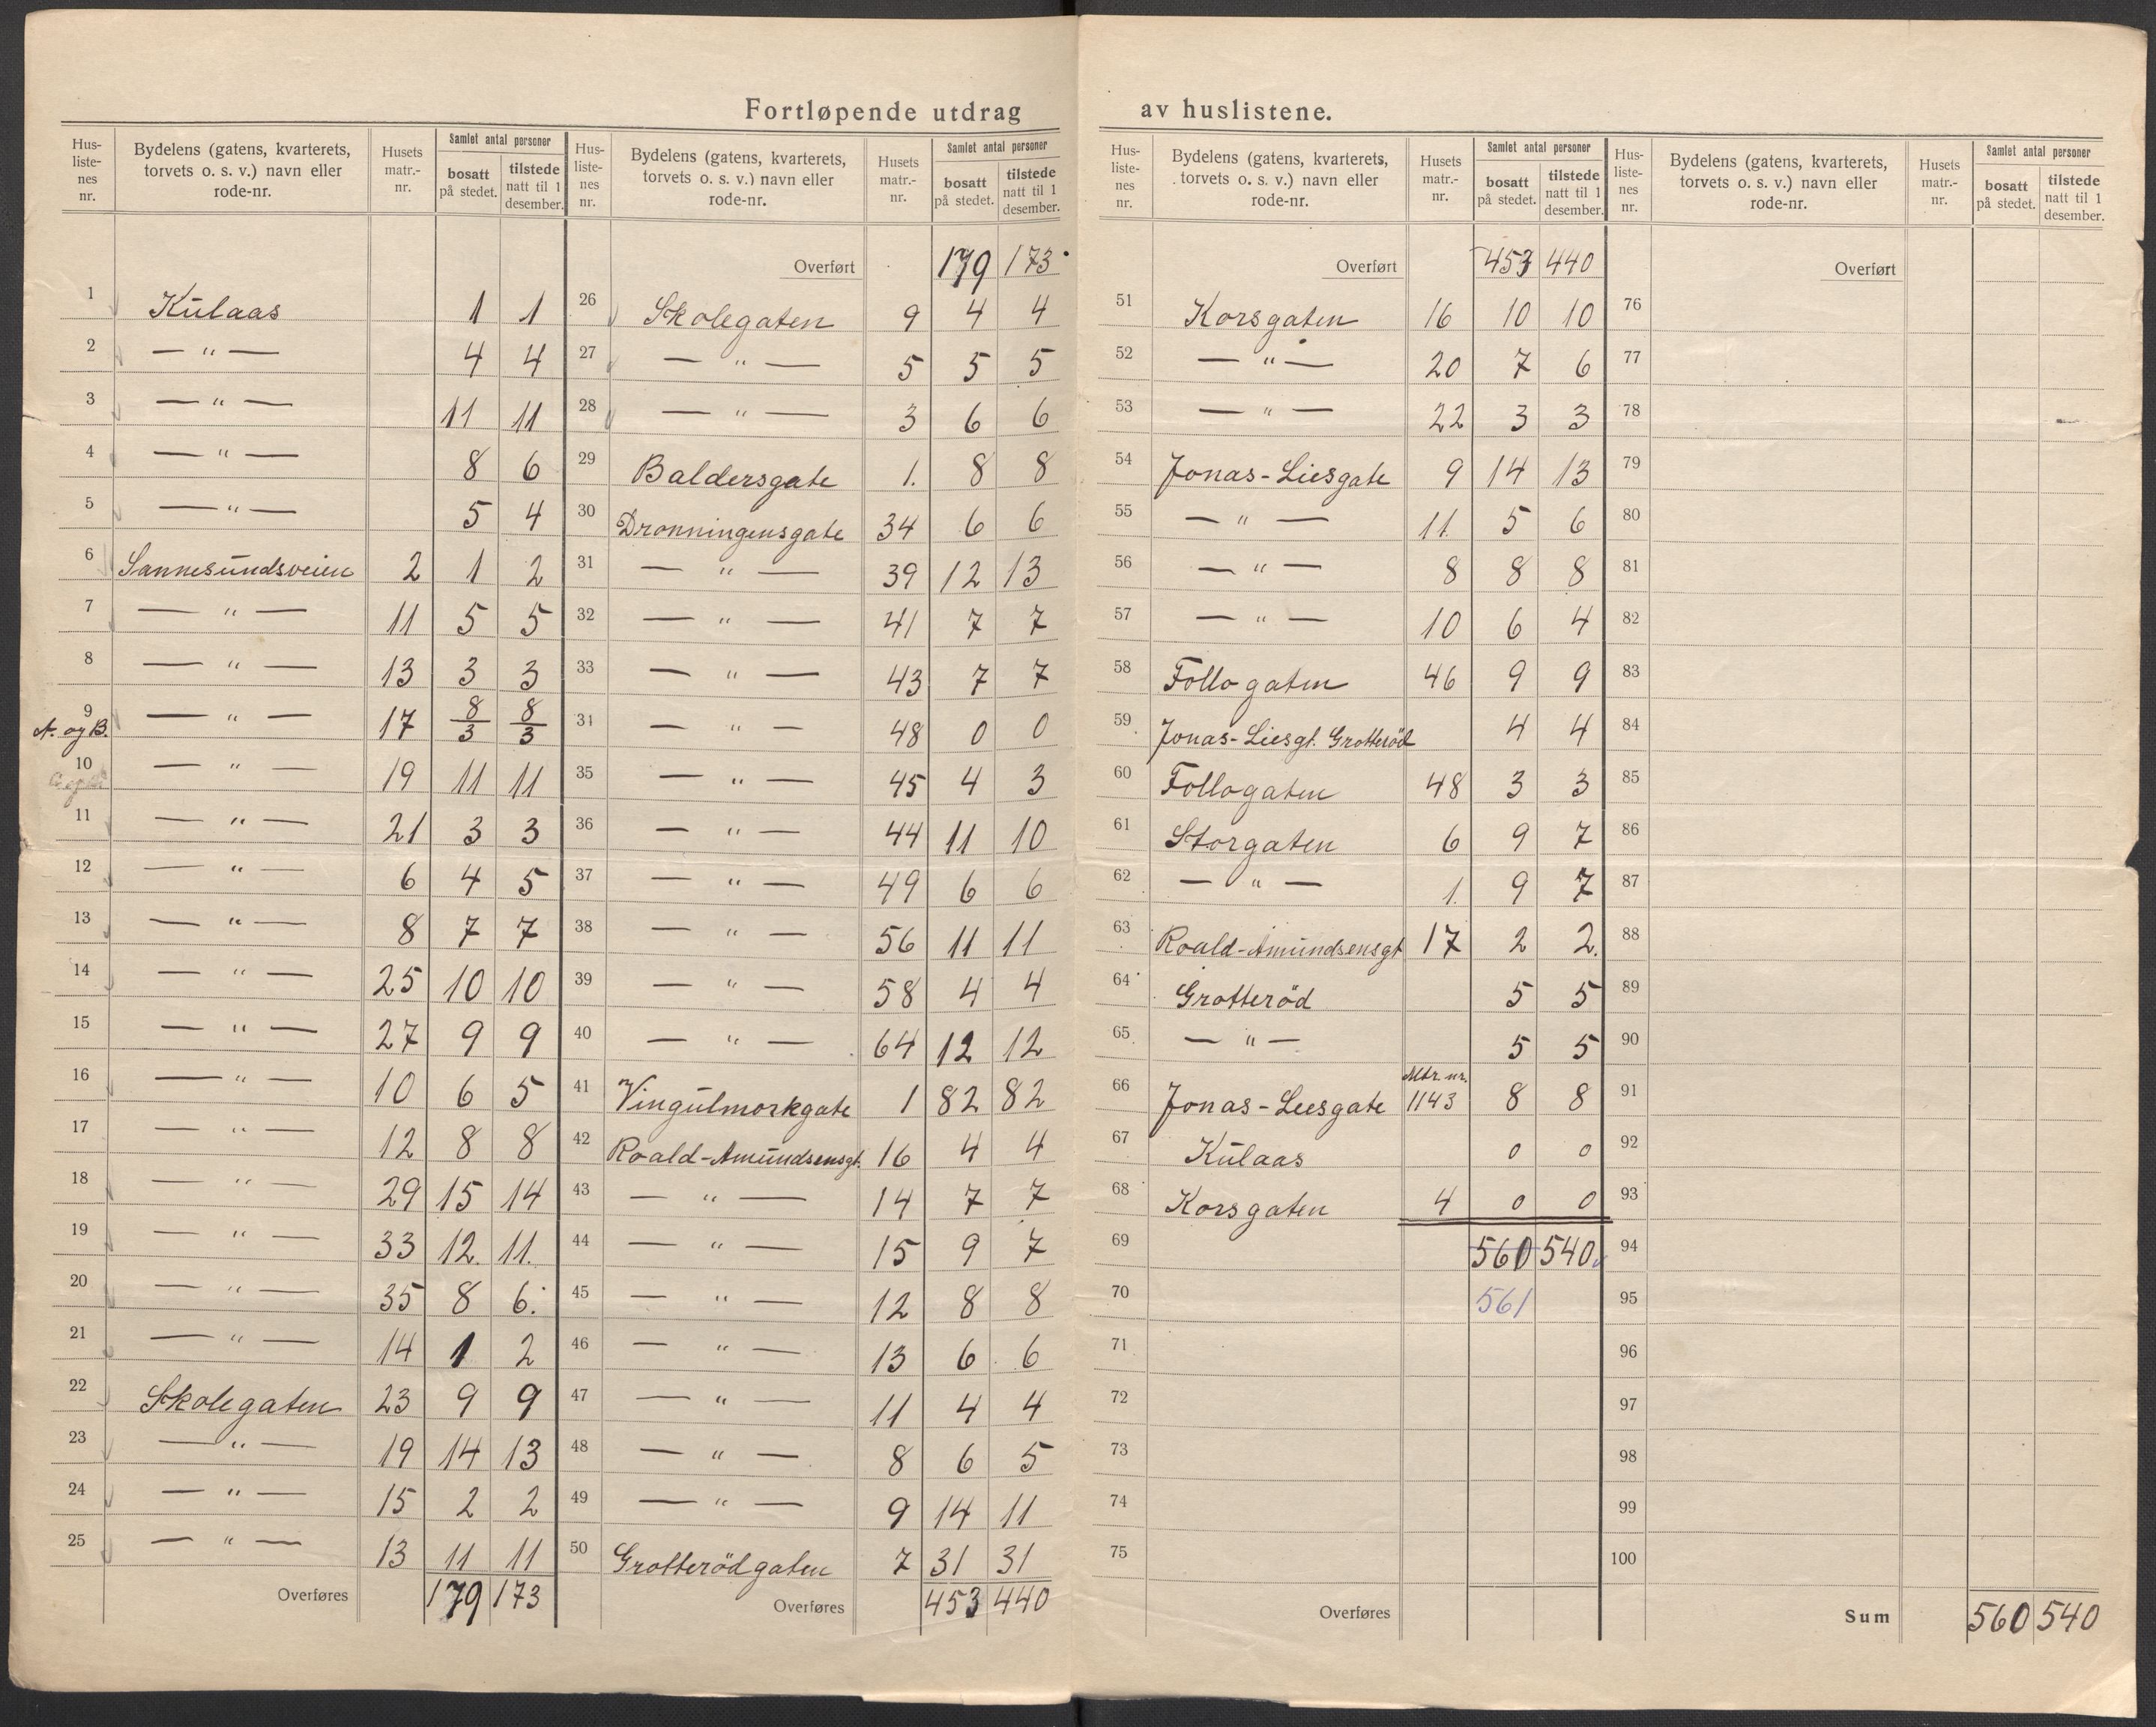 Fortløpende utdrag av huslistene.
Hus-listenes nr. | Bydelens (gatens, kvarterets, torvets o. s. v.) navn eller rode-nr. | Husets matr.-nr. | Samlet antal personer | bosatt på stedet. | tilstede natt til 1 desember.
1 Kulaas 1 1
2 — " — 4 4
3 — " — 11 11
4 — " — 8 6
5 — " — 5 4
6 Sannesundsveien 2 1 2
7 — " — 11 5 5
8 — " — 13 3 3
9 A. og B. — " — 17 8/3 8/3
10 — " — 19 11 11
11 — " — 21 3 3
12 — " — 6 4 5
13 — " — 8 7 7
14 — " — 25 10 10
15 — " — 27 9 9
16 — " — 10 6 5
17 — " — 12 8 8
18 — " — 29 15 14
19 — " — 33 12. 11.
20 — " — 35 8 6.
21 — " — 14 1 2
22 Skolegaten 23 9 9
23 — " — 19 14 13
24 — " — 15 2 2
25 — " — 13 11 11
Overføres 179 173
Hus-listenes nr. | Bydelens (gatens, kvarterets, torvets o. s. v.) navn eller rode-nr. | Husets matr.-nr. | Samlet antal personer | bosatt på stedet. | tilstede natt til 1 desember.
Overført 179 173
26 Skolegaten 9 4 4
27 — " — 5 5 5
28 — " — 3 6 6
29 Baldersgate 1. 8 8
30 Dronningensgate 34 6 6
31 — " — 39 12 13
32 — " — 41 7 7
33 — " — 43 7 7
34 — " — 48 0 0
35 — " — 45 4 3
36 — " — 44 11 10
37 — " — 49 6 6
38 — " — 56 11 11
39 — " — 58 4 4
40 — " — 64 12 12
41 Vingulmorkgate 1 82 82
42 Roald-Amundsensgt. 16 4 4
43 — " — 14 7 7
44 — " — 15 9 7
45 — " — 12 8 8
46 — " — 13 6 6
47 — " — 11 4 4
48 — " — 8 6 5
49 — " — 9 14 11
50 Grotterödgaten 7 31 31
Overføres 453 440
Hus-listenes nr. | Bydelens (gatens, kvarterets, torvets o. s. v.) navn eller rode-nr. | Husets matr.-nr. | Samlet antal personer | bosatt på stedet. | tilstede natt til 1 desember.
Overført 453 440
51 Korsgaten 16 10 10
52 — " — 20 7 6
53 — " — 22 3 3
54 Jonas-Liesgate 9 14 13
55 — " — 11. 5 6
56 — " — 8 8 8
57 — " — 10 6 4
58 Follogaten 46 9 9
59 Jonas-Liesgt. Grotteröd 4 4
60 Follogaten 48 3 3
61 Storgaten 6 9 7
62 — " — 1. 9 7
63 Roald-Amundsensgt 17 2 2.
64 Grotteröd 5 5
65 — " — 5 5
66 Jonas-Liesgate Mtr. nr. 1143 8 8
67 Kulaas 0 0
68 Korsgaten 4 0 0
69 560 540
70 561
71
72
73
74
75
Overføres
Hus-listenes nr. | Bydelens (gatens, kvarterets, torvets o. s. v.) navn eller rode-nr. | Husets matr.-nr. | Samlet antal personer | bosatt på stedet. | tilstede natt til 1 desember.
Overført
76
77
78
79
80
81
82
83
84
85
86
87
88
89
90
91
92
93
94
95
96
97
98
99
100
Sum 560 540